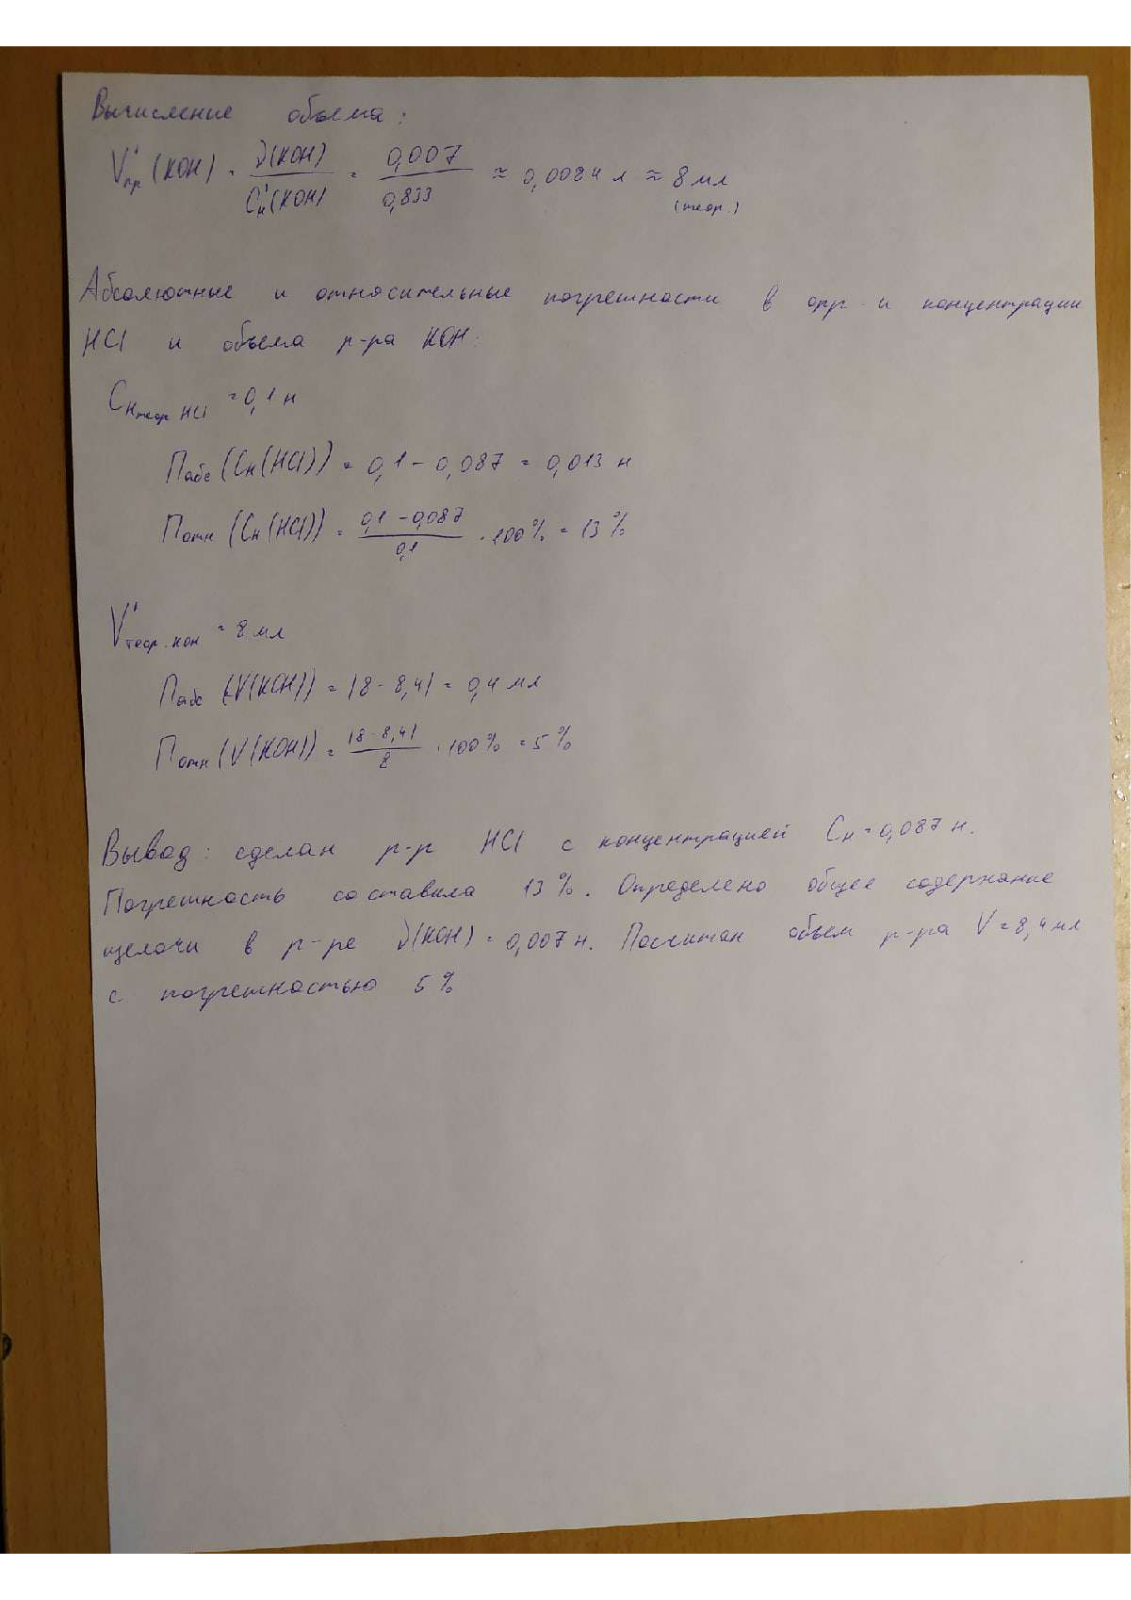 Вычисление объема:
V'пр (KOH) = ν(KOH) / C'н(KOH) = 0,007 / 0,833 ≈ 0,0084 л ≈ 8 мл
(теор.)
Абсолютные и относительные погрешности в опр-и концентрации
HCl и объема р-ра KOH:
Cн теор HCl = 0,1 н
Пабс (Cн(HCl)) = 0,1 - 0,087 = 0,013 н
Потн (Cн(HCl)) = (0,1 - 0,087) / 0,1 · 100% = 13%
V'теор. KOH = 8 мл
Пабс (V(KOH)) = |8 - 8,4| = 0,4 мл
Потн (V(KOH)) = |8 - 8,4| / 8 · 100% = 5%
Вывод: сделан р-р HCl с концентрацией Cн = 0,087 н.
Погрешность составила 13%. Определено общее содержание
щелочи в р-ре ν(KOH) = 0,007 н. Посчитан объем р-ра V = 8,4 мл
с погрешностью 5%